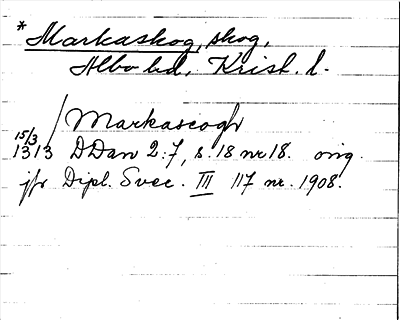 *Markaskog, skog,
Albo hd, Krist. l.
Markascogh
15/3
1313 DDan 2:7, s. 18 nr 18. orig.
jfr Dipl. Svec. III 117 nr. 1908.